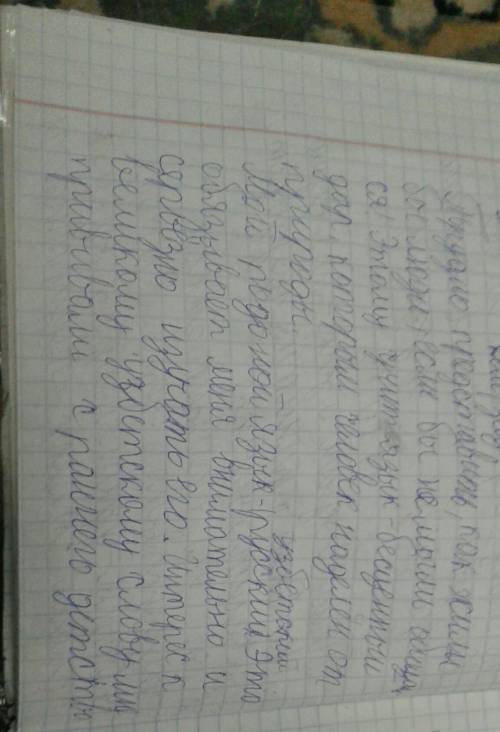 Трудно представить, как жили
бы люди, если бы не могли общать
ся. Этому учит язык - бесценный
дар, которым человек наделен от
природы.
узбекский
Мой родной язык - русский. Это
обязывает меня внимательно и
серьёзно изучать его. Интерес к
великому узбекскому слову мне
прививали с раннего детства